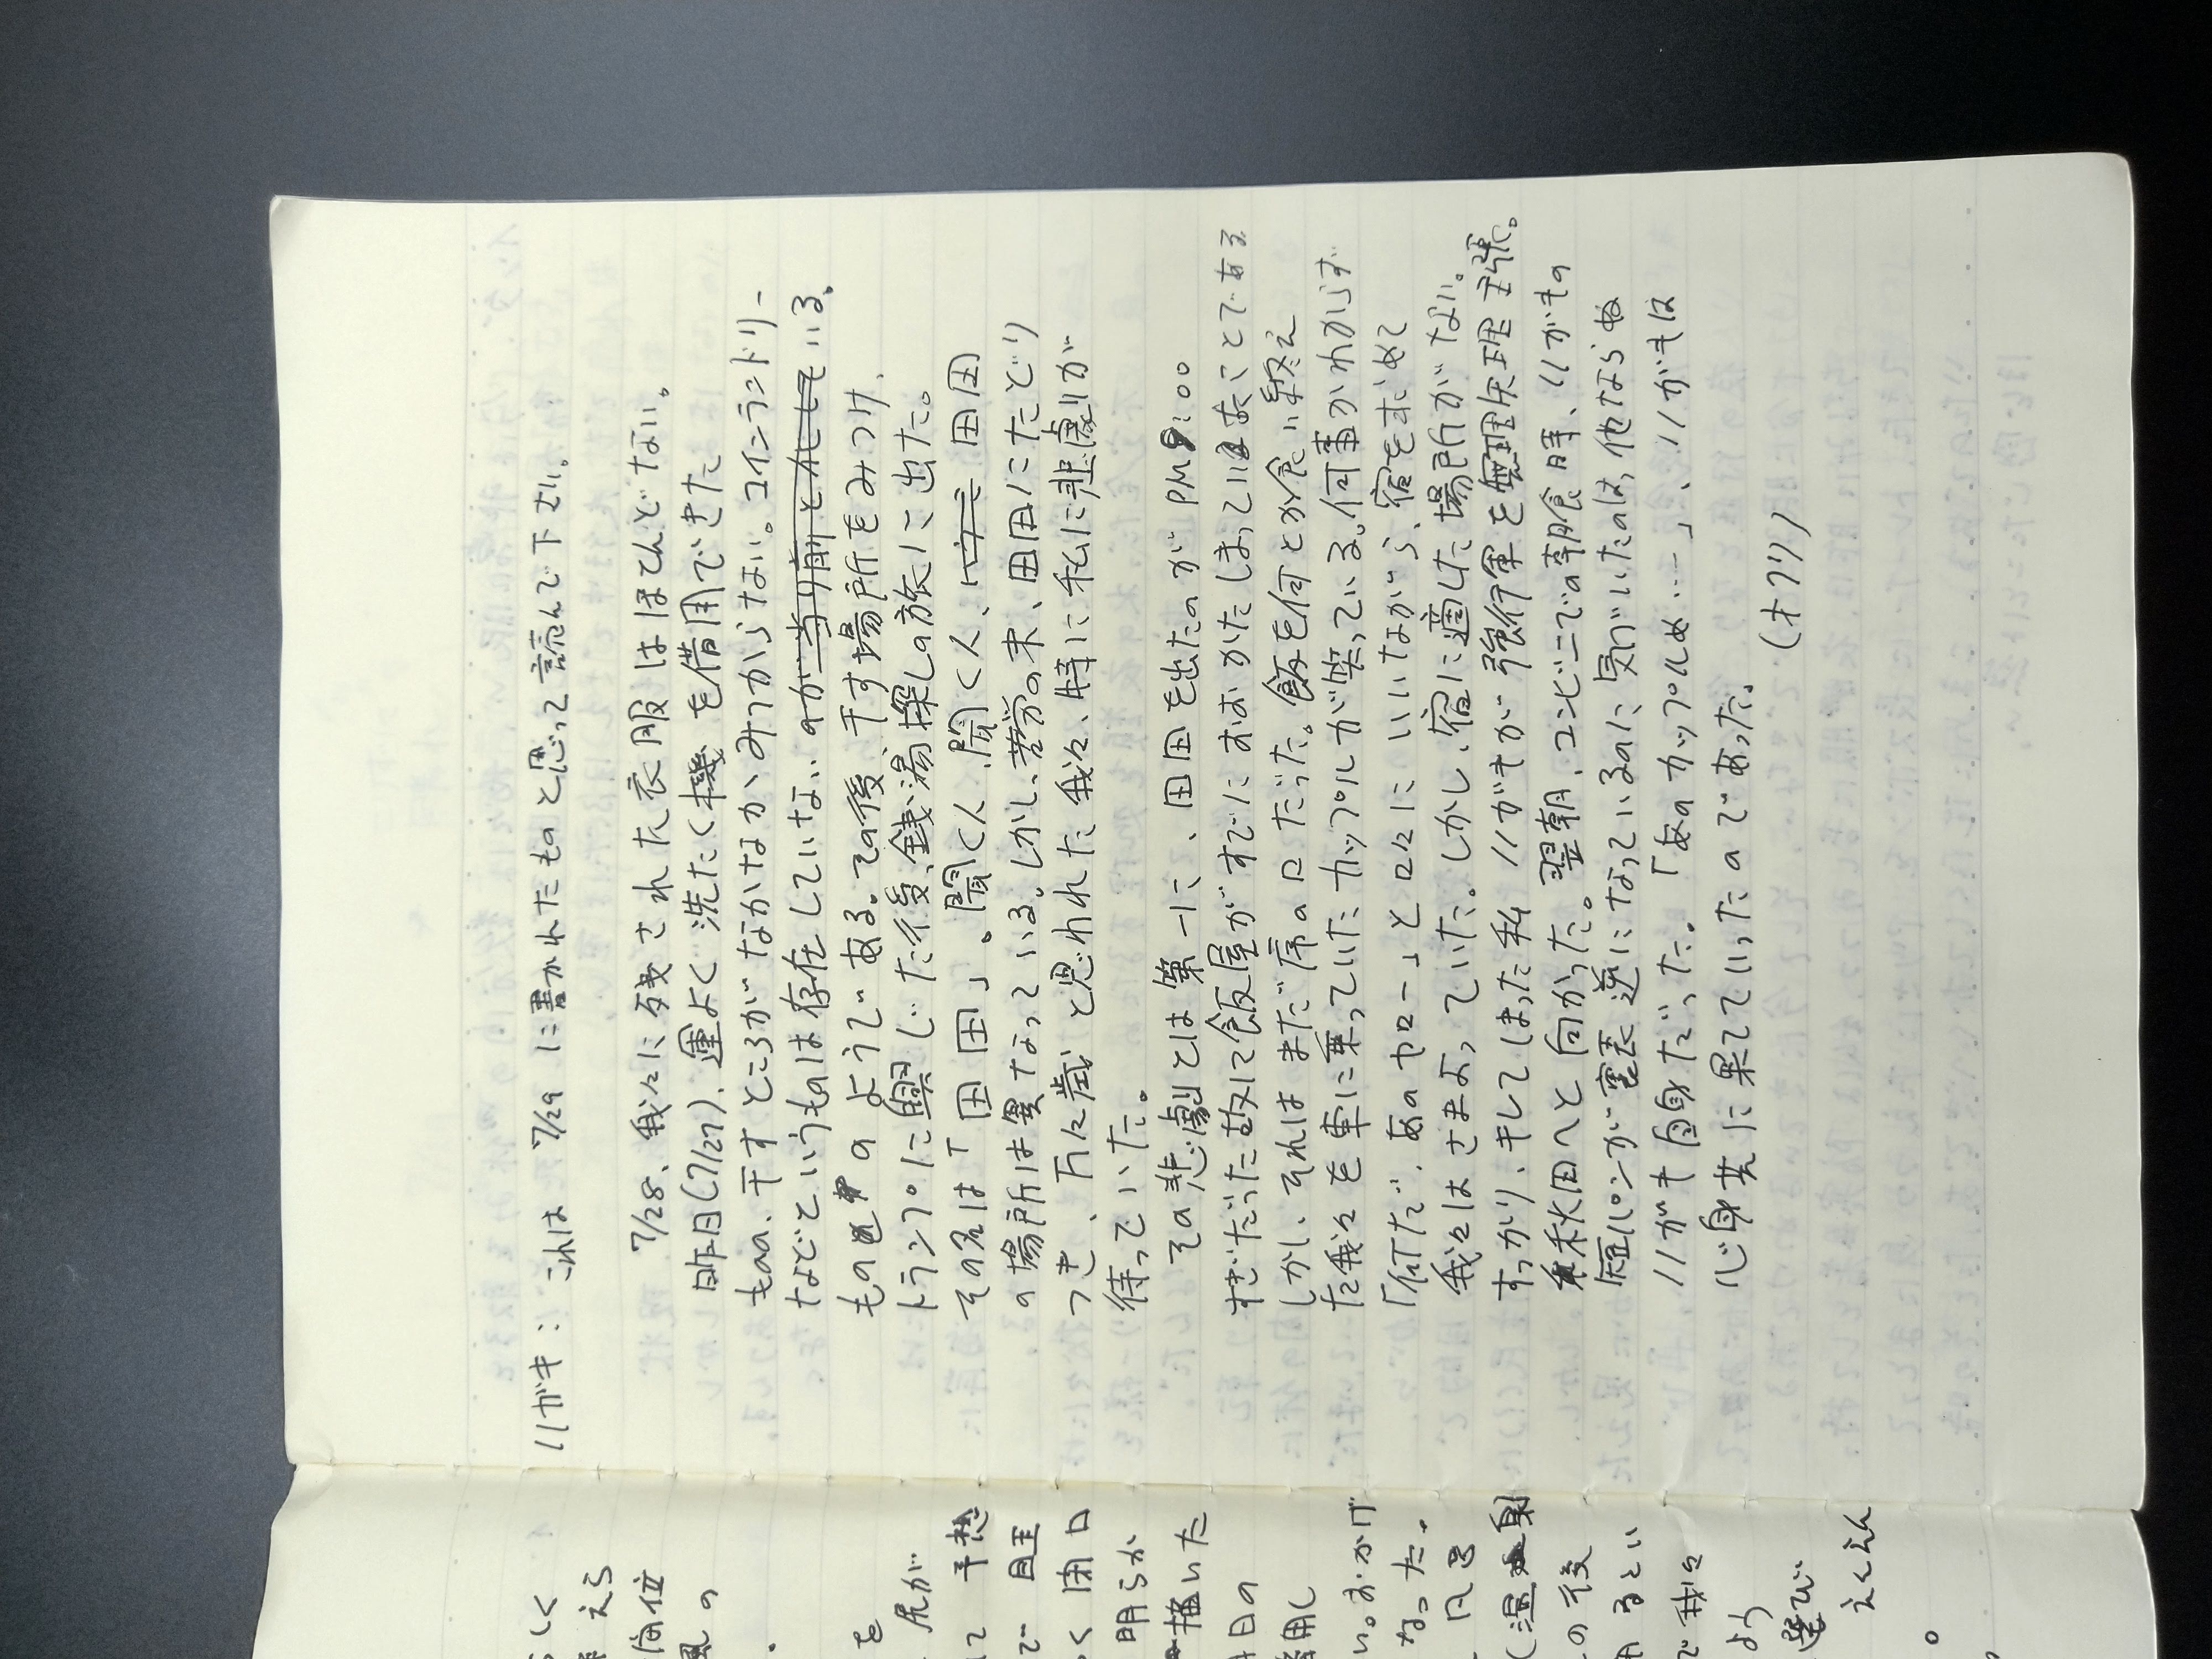 ハガキ：これは 7/29 に書かれたものと思って読んで下さい。
7/28、我々に残された衣服はほとんどない。
昨日(7/27)、運よく洗たく機を借用できた
ものの、干すところがなかなかみつからない。コインランドリー
などというものは存在していないのが当り前とかしている。
もののようである。その後、干す場所をみつけ、
トランプに興じた後、銭湯探しの旅に出た。
その名は「田田」。聞く人、聞く人、田田
の場所は異なっている。しかし、苦労の末、田田にたどり
つき、万々歳と思われた我々、特に私に悲劇が
待っていた。
その悲劇とは第一に、田田を出たのが PM9:00
すぎだった故に飯屋がすでにおおかたしまっていたことである
しかし、それはまだ序の口だった。飯を何とか食い終え
た我々を車に乗っていたカップルが笑っている。何事かわからず
「何だ、あのヤロー」と口々にいいながら、宿を求めて
我々はさまよっていた。しかし、宿に適した場所がない。
すっかり、キレてしまった私ハガキが強行軍を無理矢理主張。
秋田へと向かった。翌朝、コンビニでの朝食時、ハガキの
短パンが裏表逆になっているのに気づいたのは、他ならぬ
ハガキ自身だった。「あのカップルめ…」、ハガキは
心身共に果てていったのであった。
(オワリ)
尻が
予想
閉口
明らか
描いた
日の
借用し
い。おかげ
なった。
風呂
の後
るとい
で我々
より
選び